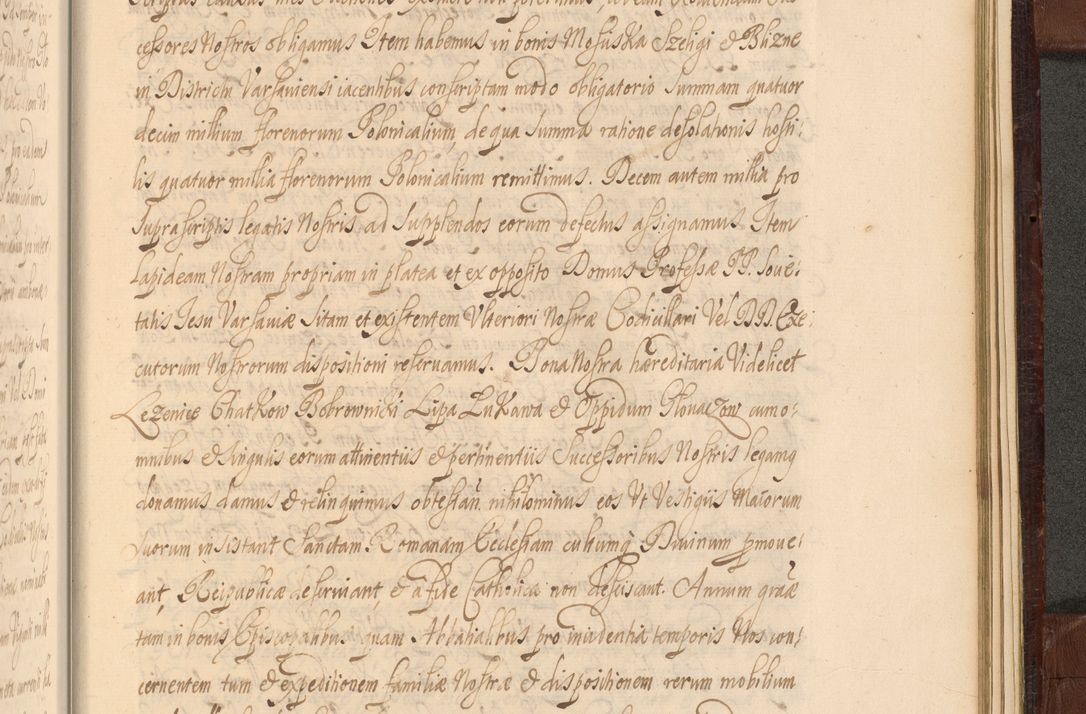 cessores Nostros obligamus Item habemus in bonis Mosuska Szeligi & Blizne
in Districtu Varsaviensi iacentibus conscriptam modo obligatorio Summam quatuor
decim millium florenorum Polonicalium, de qua Summa ratione desolationis hosti:
lis quatuor millia florenorum Polonicalium remittimus. Decem autem millia pro
supra scriptis legatis Nostris ad Supplendos eorum defectus assignamus. Item
Lapideam Nostram propriam in platea et ex opposito Domus Professæ PP. Socie:
tatis Jesu Varsaviæ Sitam et existentem Ulteriori Nostræ Codicillari Vel DD. Exe:
cutorum Nostrorum dispositioni reservamus. Bona Nostra hæreditaria Videlicet
Lezenice Chatkow Bobrowniki Lipa Lukawa & Oppidum Glovaczow cum o:
mnibus & singulis eorum attinentiis & pertinentiis Successoribus Nostris legamq
donamus damus & relinquimus obtestan. nihilominus eos Ut Vestigiis Maiorum
suorum insistant Sanctam Romanam Ecclesiam cultumq Divinum pmove:
ant, Reipublicæ deserviant, & a fide Catholica non desciscant. Annum graæ
tam in bonis Episcopalibus quam Abbatialibus pro incidentia temporis Nos con:
cernentem tum & expeditionem familiæ Nostræ & dispositionem rerum mobilium